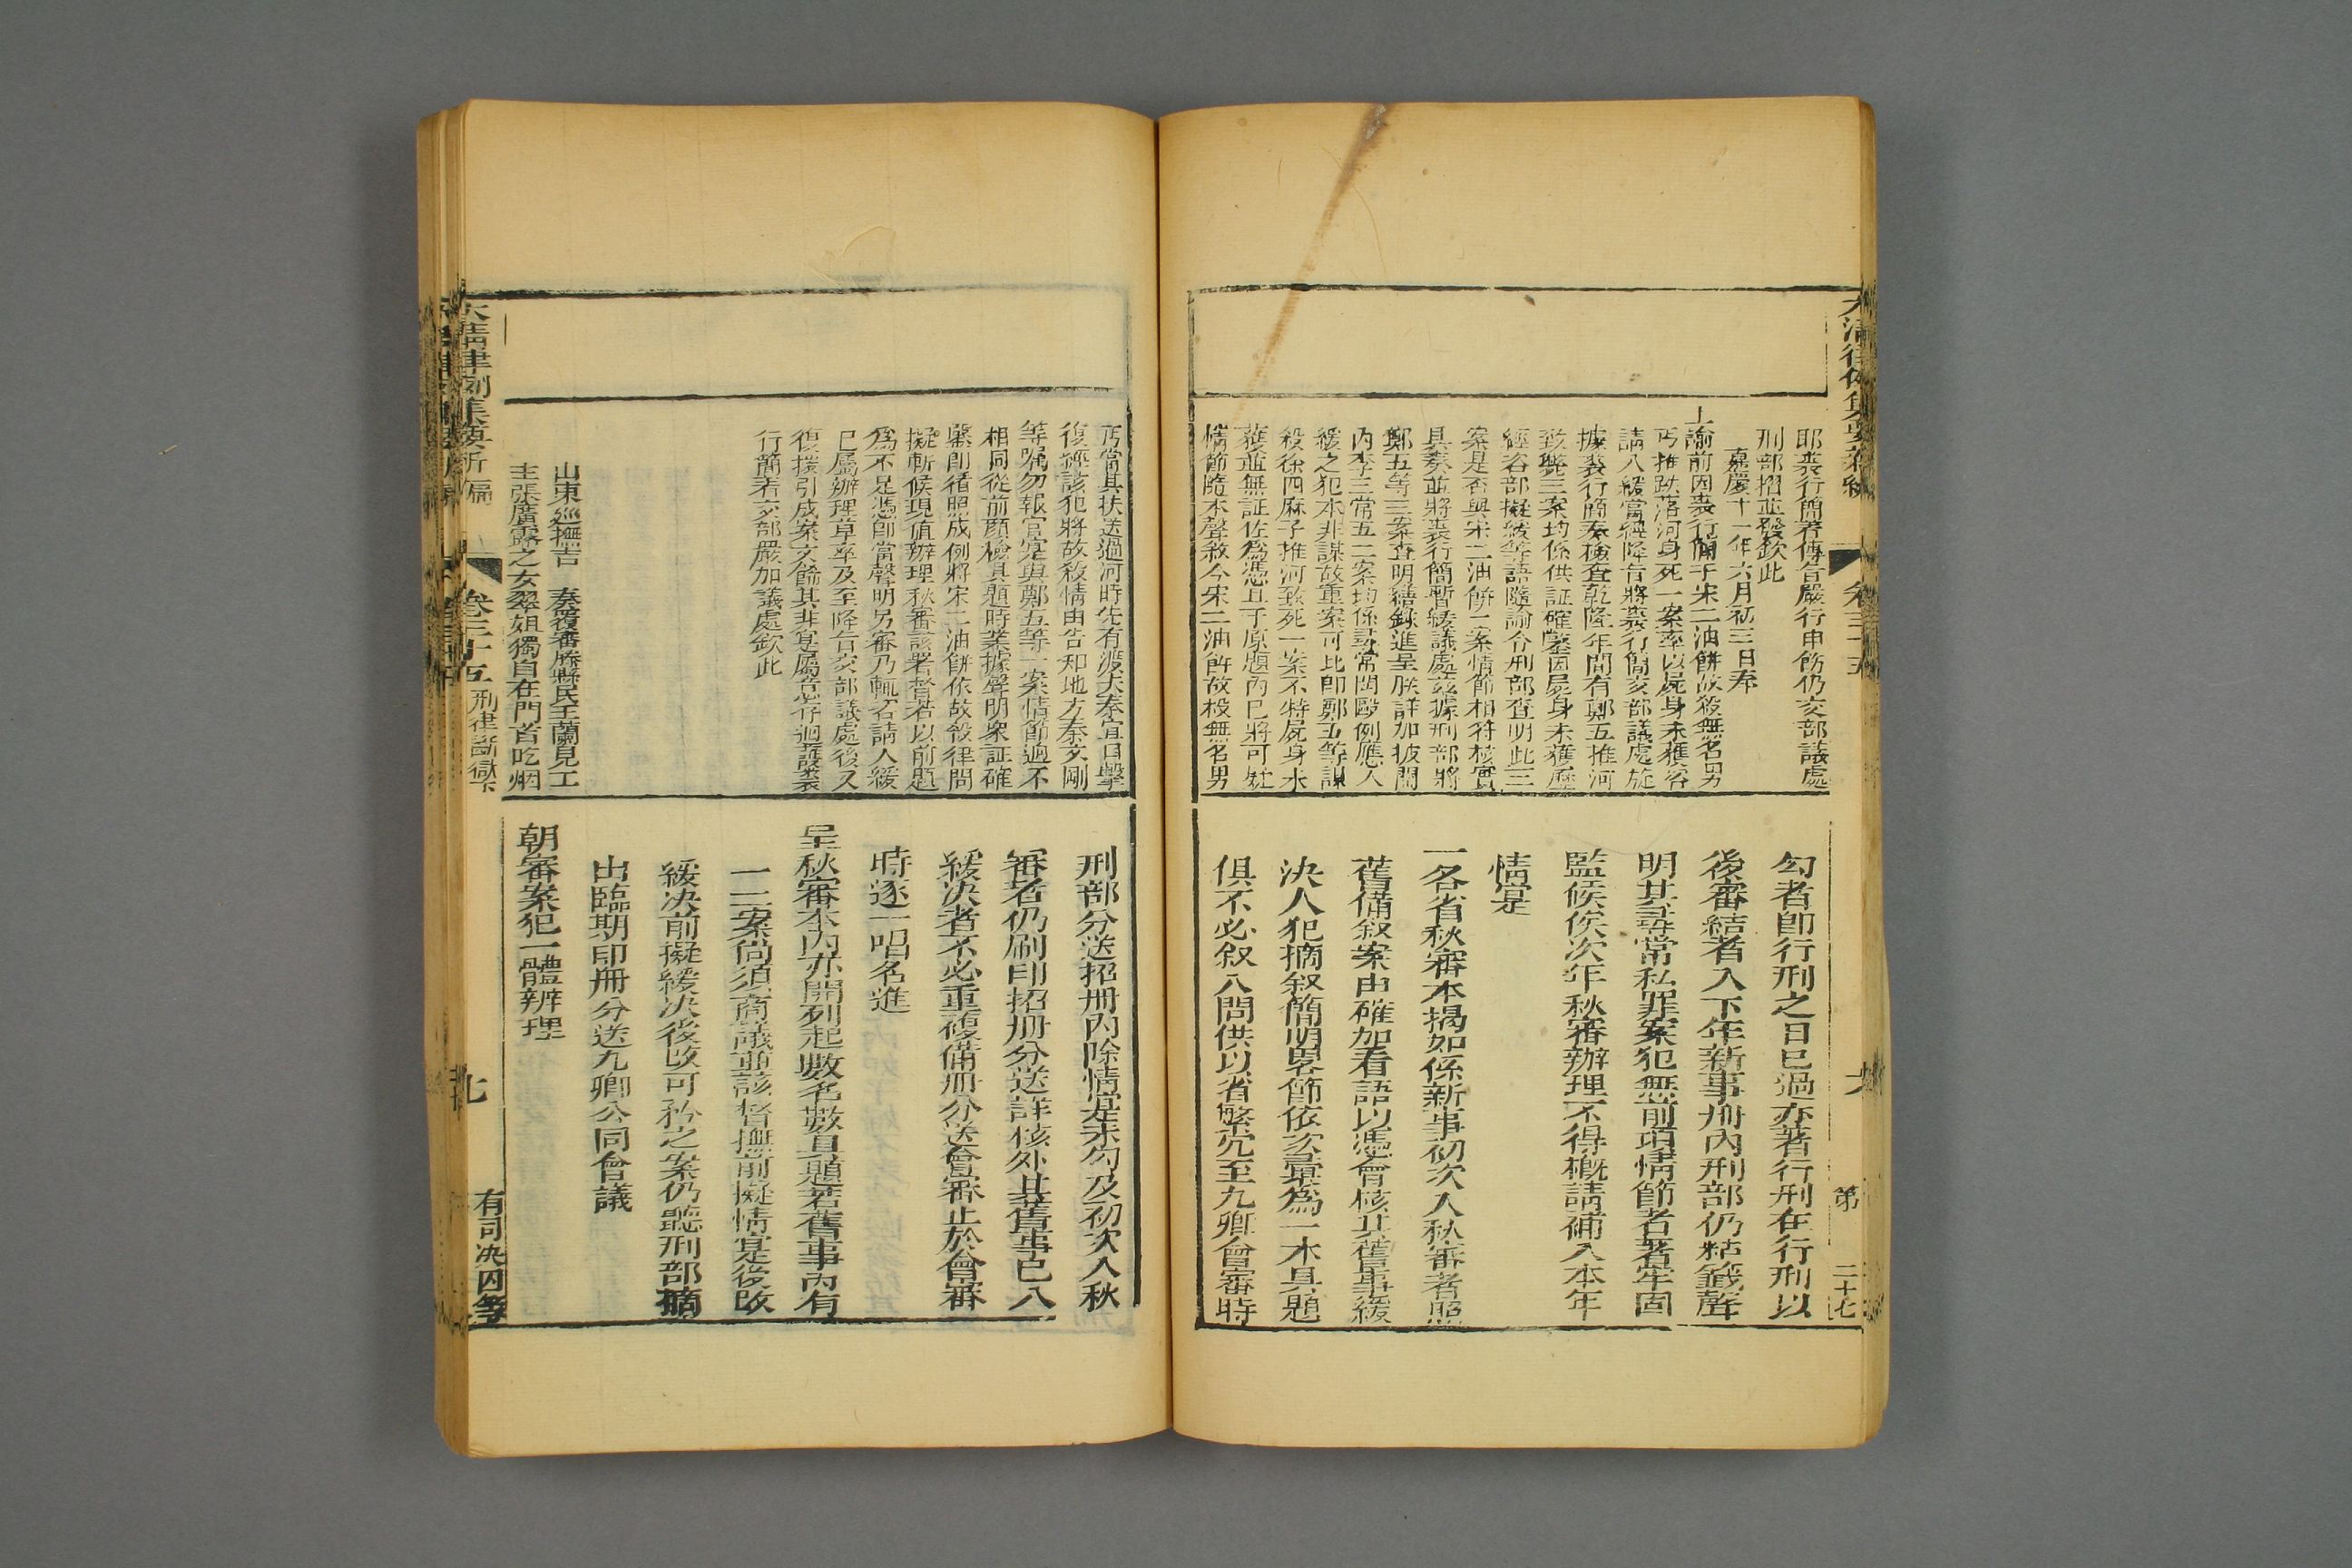 耶裘行簡著傳旨嚴行申飭仍交部議處
刑部招並發欽此
嘉慶十一年六月初三日奉
上諭前因裘行簡于宋二油餅故殺無名男
丐推跌落河身死一案率以屍身未獲咨
請入緩當經降旨將裘行簡交部議處旋
據裘行簡奏檢查乾隆年間有鄭五推河
致斃三案均係供証確鑿因屍身未獲歷
經咨部擬緩等語隨諭令刑部查明此三
案是否與宋二油餅一案情節相符核實
具奏並將裘行簡暫緩議處茲據刑部將
鄭五等三案查明繕錄進呈朕詳加披閱
內李三常五二案均係尋常鬥毆例應入
緩之犯本非謀故重案可比即鄭五等謀
殺徐四麻子推河致死一案不特屍身未
獲並無証佐為憑且于原題內已將可疑
情節隨本聲敘今宋二油餅故殺無名男
勾者即行刑之日已過亦著行刑在行刑以
後審結者入下年新事冊內刑部仍粘籤聲
明其尋常私罪案犯無前項情節者著牢固
監候俟次年秋審辦理不得概請補入本年
情實
一各省秋審本揭如係新事初次入秋審者照
舊備叙案由確加看語以憑會核其舊事緩
決人犯摘叙簡明畧節依次彙為一本具題
俱不必叙入問供以省繁冗至九卿會審時
第 二十七
丐當其扶送過河時先有渡夫秦宜目擊
復經該犯將故殺情由告知地方秦文剛
等囑勿報官實與鄭五等一案情節迥不
相同從前顏檢具題時業據聲明衆証確
鑿即循照成例將宋二油餅依故殺律問
擬斬候現值辦理秋審該署督若以前題
為不足憑即當聲明另審乃輒咨請入緩
已屬辦理草率及至降旨交部議處後又
復援引成案文飾其非實屬意存迴護裘
行簡著交部嚴加議處欽此
山東巡撫吉 奏覆審滕縣民王蘭見工
主張廣露之女翠姐獨自在門首吃烟
刑部分送招冊內除情實未勾及初次入秋
審者仍刷印招冊分送詳核外其舊事已入
緩決者不必重複備冊分送會審止於會審
時逐一唱名進
呈秋審本內亦開列起數名數具題若舊事內有
一二案尚須商議並該督撫前擬情實後改
緩決前擬緩決後改可矜之案仍聽刑部摘
出臨期印冊分送九卿公同會議
朝審案犯一體辦理
大清律例集要新編
卷三十五
刑律斷獄下
有司決囚等